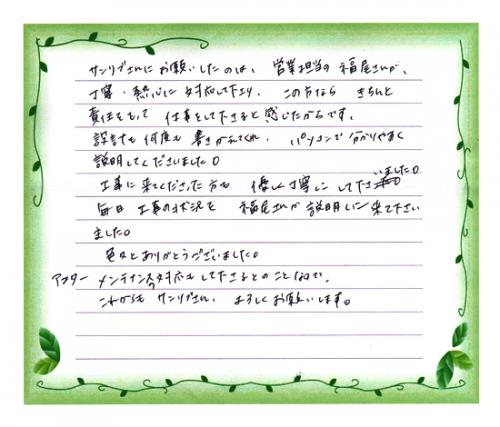 サンリブさんにお願いしたのは、営業担当の福尾さんが、
丁寧・熱心に対応して下さり、この方なら きちんと
責任をもって 仕事をして下さると感じたからです。
設計も何度も書きかえてくれ、パソコンで分かりやすく
説明してくださいました。
工事に来てくださった方も 優しく丁寧にして下さいました。
毎日 工事の状況を 福尾さんが説明しに来て下さい
ました。
色々とありがとうございました。
アフターメンテナンスの対応もしてださるとのことなので、
これからもサンリブさん、よろしくお願いします。